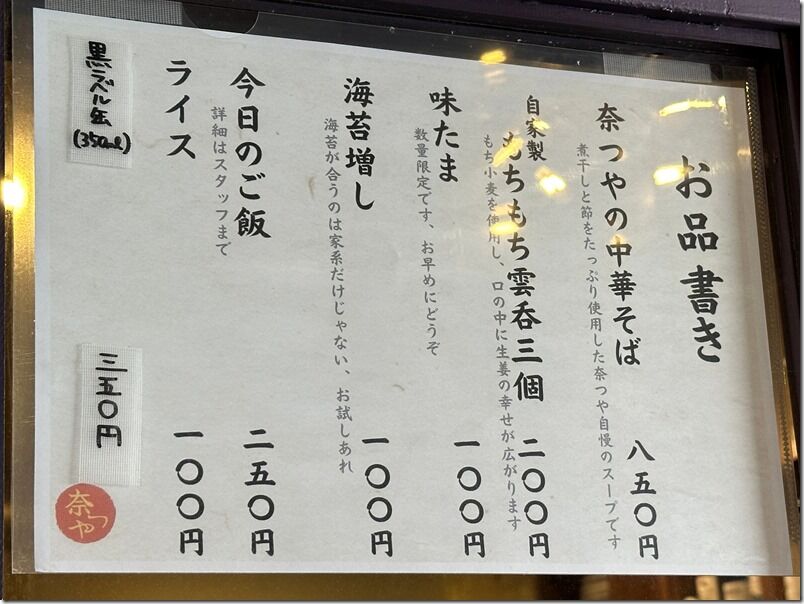 お品書き
奈つやの中華そば 八五〇円
煮干しと節をたっぷり使用した奈つや自慢のスープです
自家製
もちもち雲呑三個 二〇〇円
もち小麦を使用し、口の中に生姜の幸せが広がります
味たま 一〇〇円
数量限定です、お早めにどうぞ
海苔増し 一〇〇円
海苔が合うのは家系だけじゃない、お試しあれ
今日のご飯 二五〇円
詳細はスタッフまで
ライス 一〇〇円
黒ラベル缶
(350ml)
三五〇円
奈つや